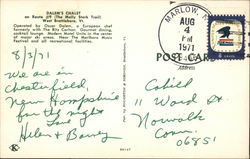 DALEN'S CHALET
on Route #9 (The Molly Stark Trail)
West Brattleboro, Vt.
Operated by Oscar Dalem, a European chef
formerly with The Ritz Carlton. Gourmet dining,
cocktail lounge. Modern Motel Units in the center
of major ski areas. Near The Marlboro Music
Festival and all recreational facilities.
MARLOW, N
AUG
4
PM
1971
POST CARD
8/3/71
We are in
Chesterfield,
New Hampshire
for the night
Love
Helen & Barney
11 Ward St.
Norwalk
Conn.
06851
K